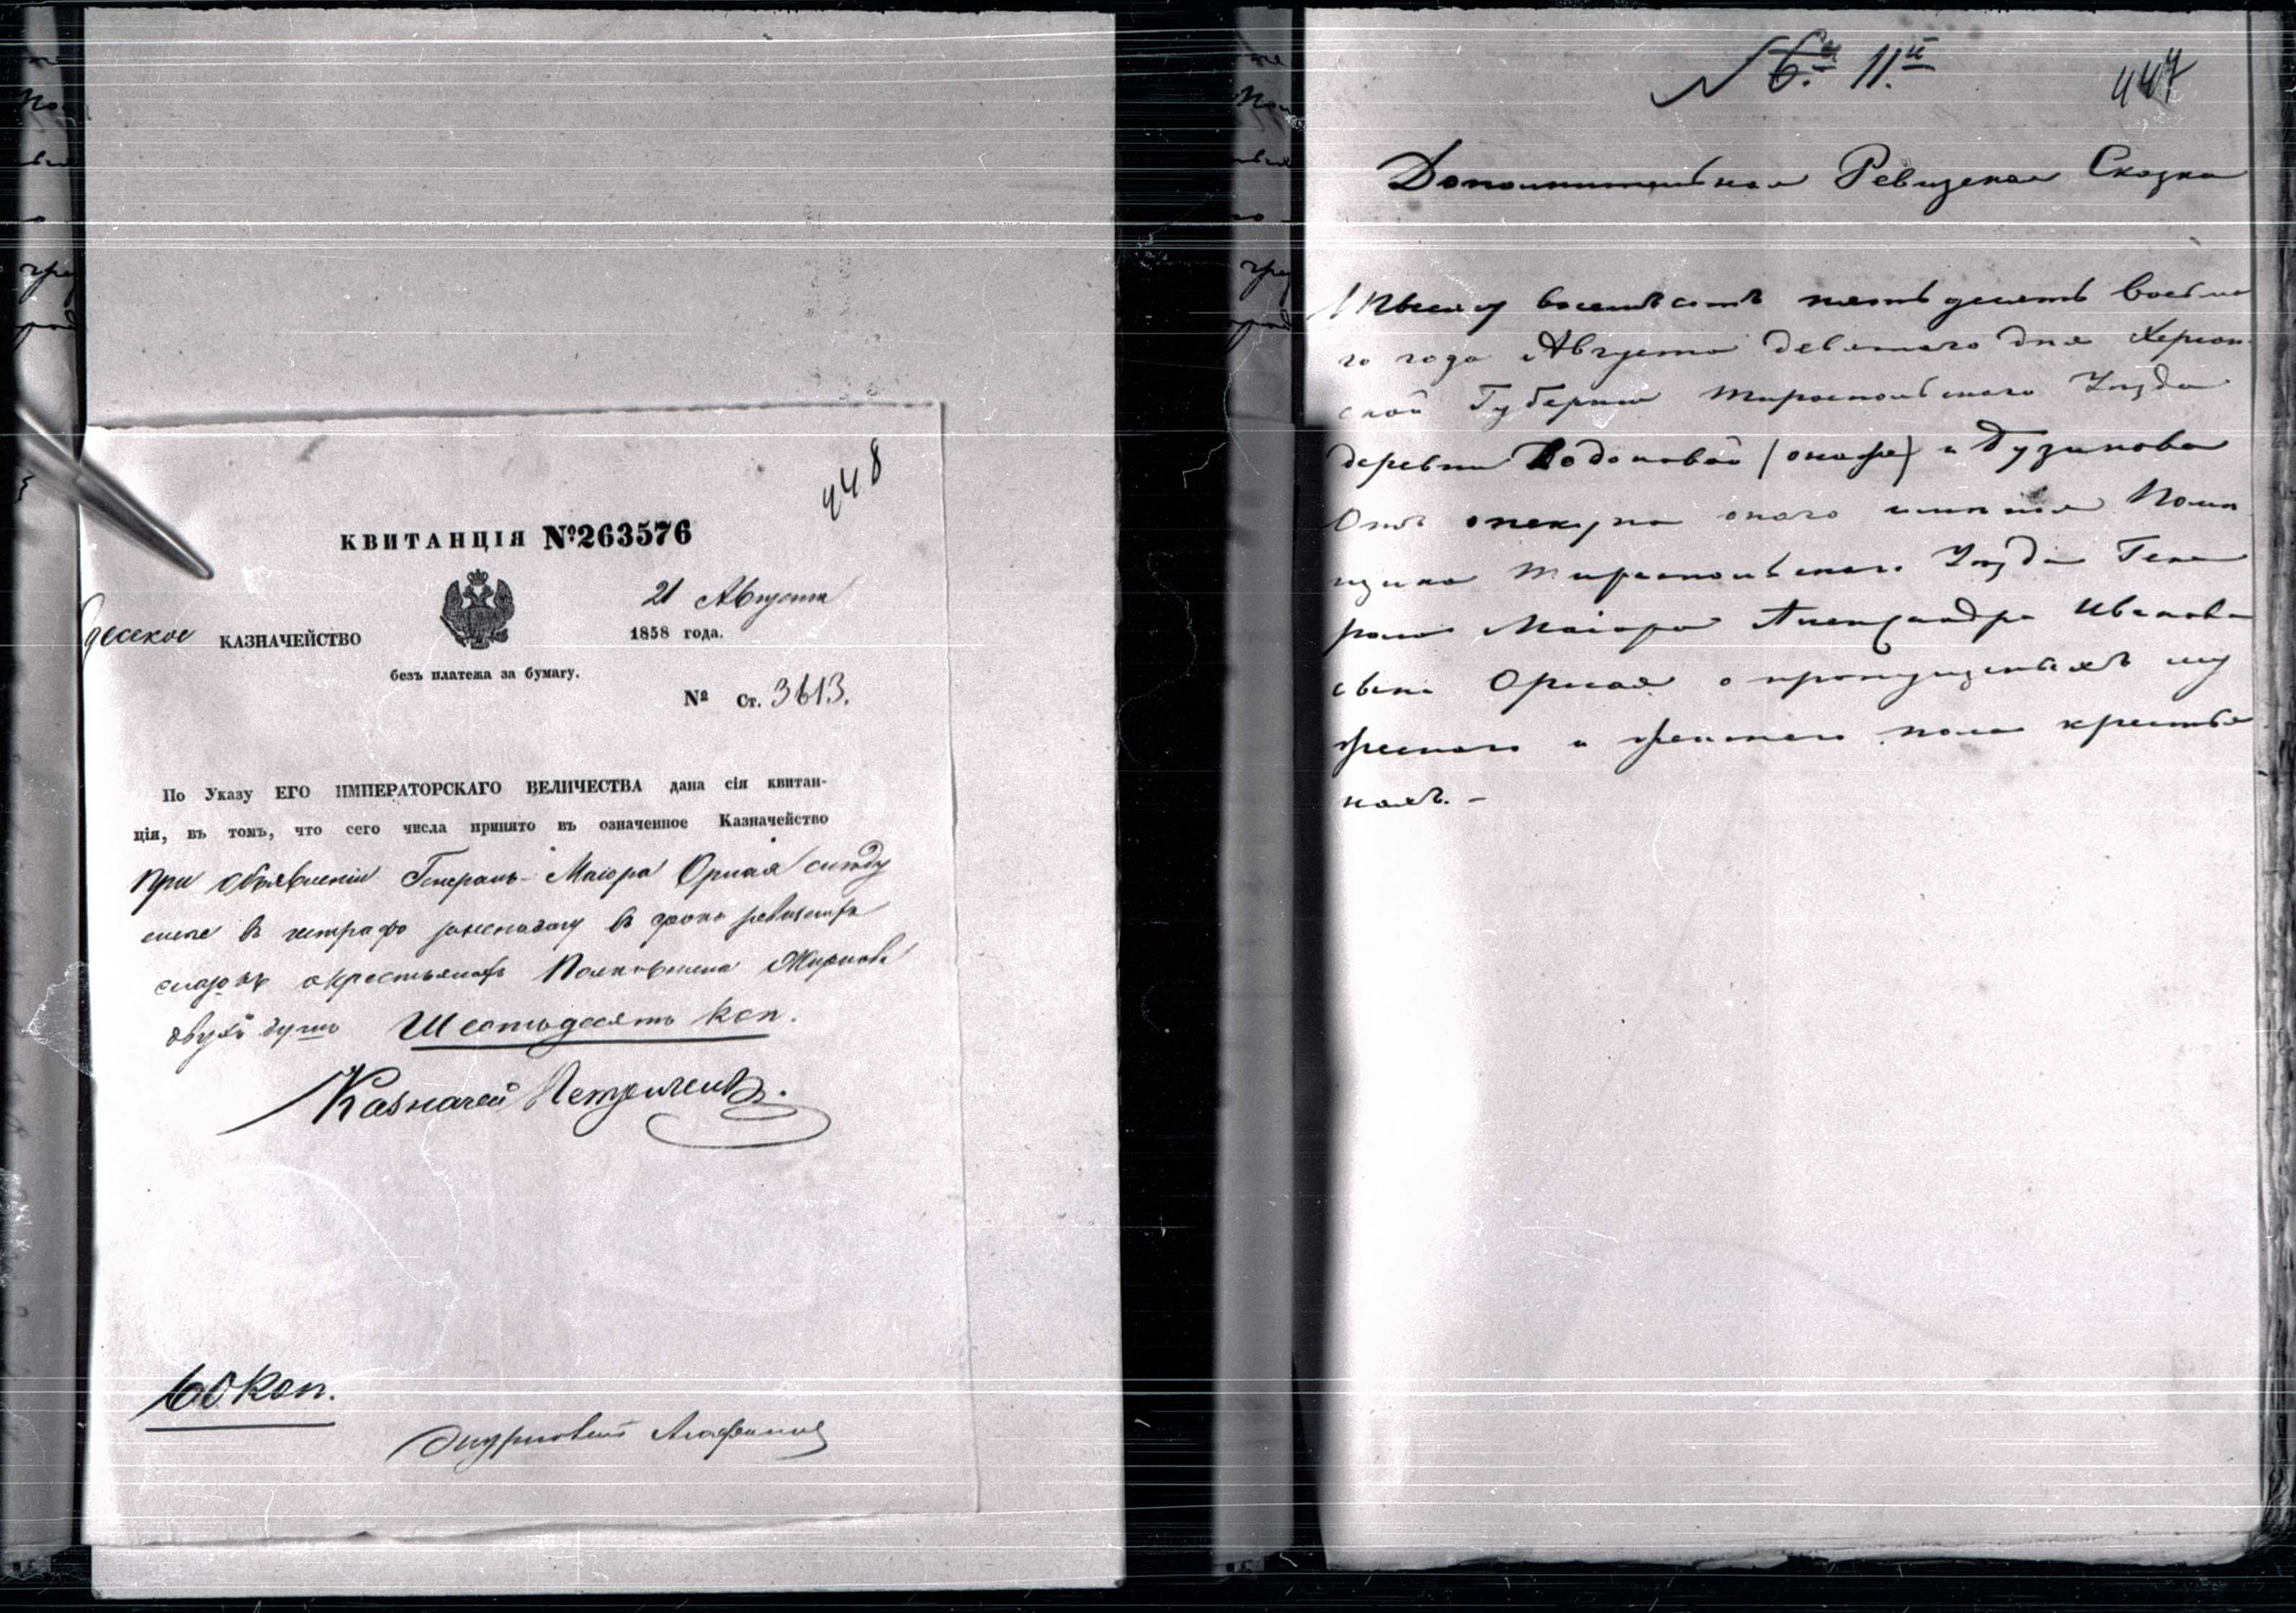 448
КВИТАНЦІЯ №263576
21 Августа
десское КАЗНАЧЕЙСТВО
1858 года.
безъ платежа за бумагу.
№ Ст. 3613.
По Указу ЕГО ИМПЕРАТОРСКАГО ВЕЛИЧЕСТВА дана сія квитан-
ція, въ томъ, что сего числа принято въ означенное Казначейство
при объявленіи Генералъ-Маіора Орлая слѣду
въ срокъ ревизскихъ
окрестьянахъ Полковника
двухъ душъ Шестьдесятъ коп.
Казначей
60 коп.
N 6.й 11.й
447
Дополнительная Ревизская Сказка
Тысяча восемьсотъ пятьдесятъ восьма
го года Августа девятаго дня Херсон
ской Губерніи Тираспольскаго Уѣзда
деревни (онаже) и Бузинова
Отъ опекуна онаго имѣнія Помѣ
щика Тираспольскаго Уѣзда Гене
рала Маіора Александра Иванова
сына Орлая о пропущенныхъ му
жескаго и женскаго пола крестья
нахъ. -